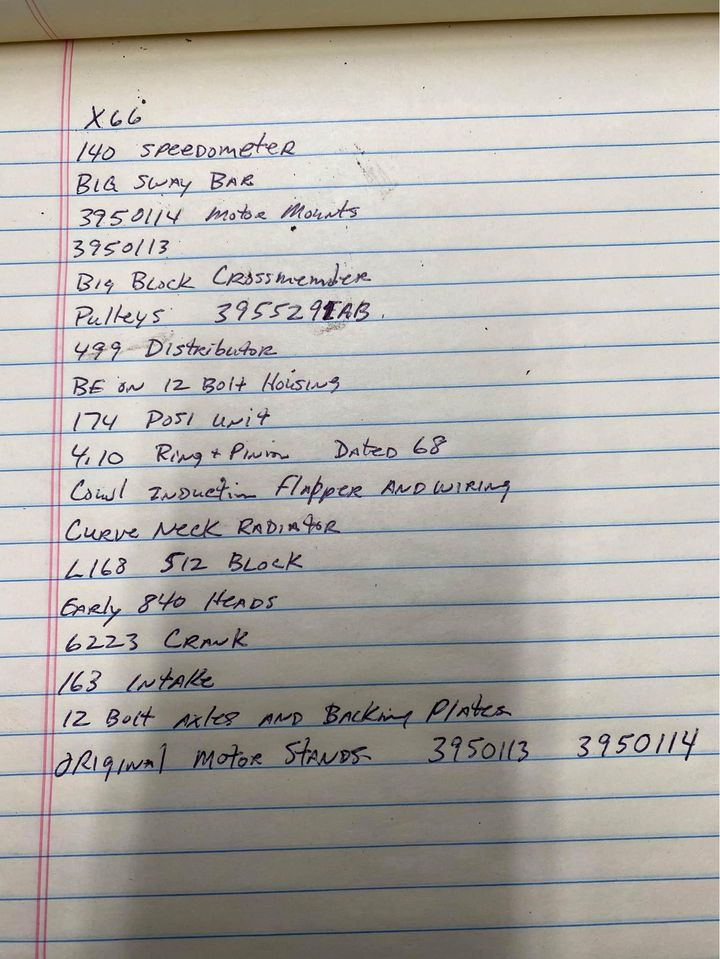 X66
140 Speedometer
Big Sway Bar
3950114 Motor Mounts
3950113
Big Block Crossmember
Pulleys 3955291AB.
499 Distributor
BE on 12 Bolt Housing
174 Posi Unit
4.10 Ring + Pinion Dated 68
Cowl Induction Flapper and Wiring
Curve Neck Radiator
L168 512 Block
Early 840 Heads
6223 Crank
163 Intake
12 Bolt Axles and Backing Plates
Original Motor Stands 3950113 3950114